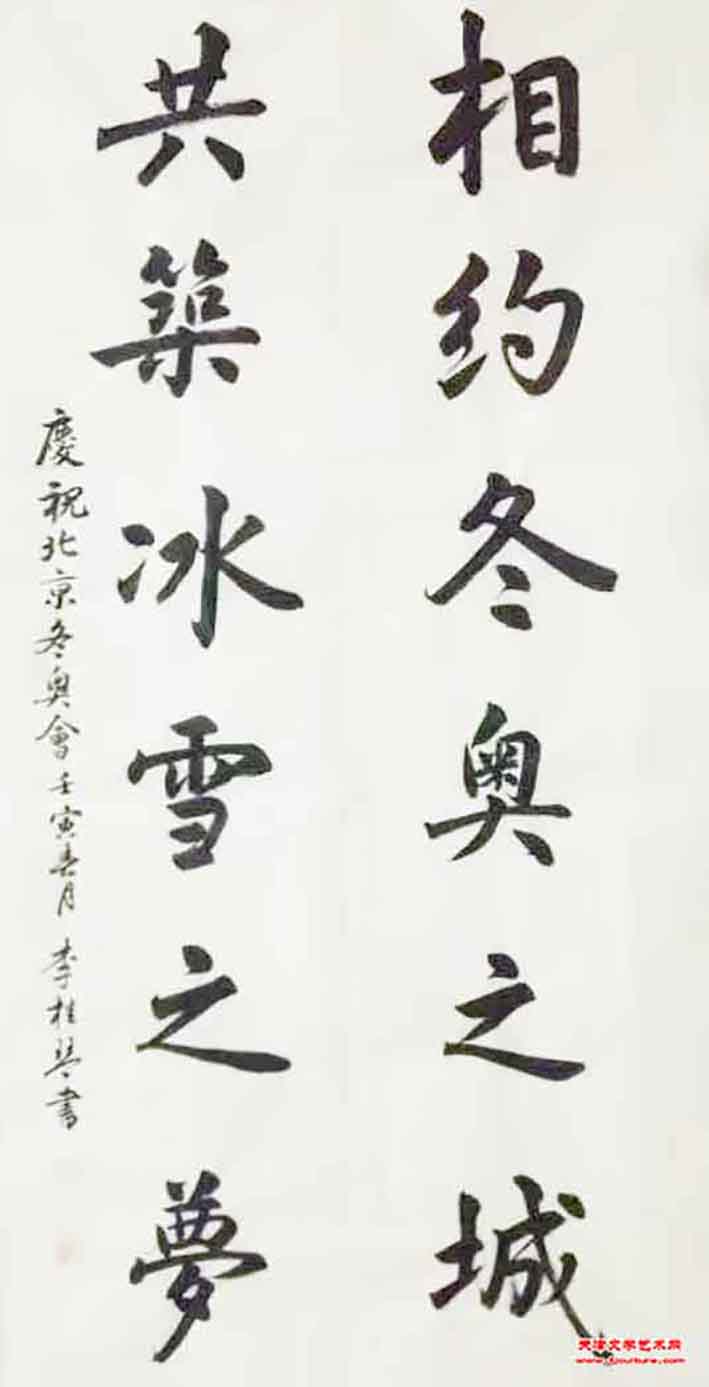 相约冬奥之城
共築冰雪之夢
慶祝北京冬奥會壬寅春月李桂琴書
天津文学艺术网